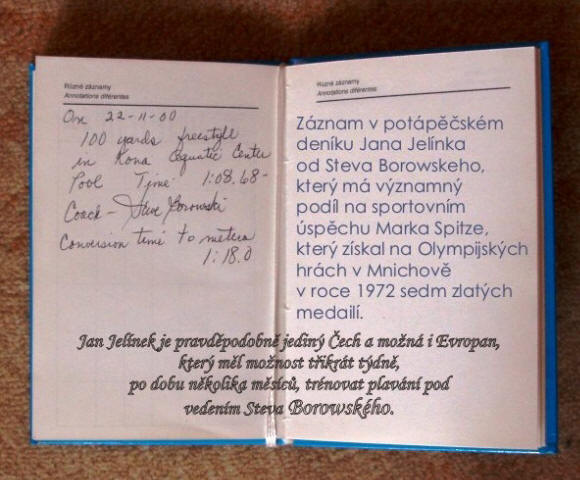 Různé záznamy
Annotations différentes
On 22-11-00
100 yards freestyle
in Kona Aquatic Center
Pool Time 1:08.68-
Coach - Steve Borowski
Conversion time to meters
1:18.0
Různé záznamy
Annotations différentes
Záznam v potápěčském
deníku Jana Jelínka
od Steva Borowskeho,
který má významný
podíl na sportovním
úspěchu Marka Spitze,
který získal na Olympijských
hrách v Mnichově
v roce 1972 sedm zlatých
medailí.
Jan Jelínek je pravděpodobně jediný Čech a možná i Evropan,
který měl možnost třikrát týdně,
po dobu několika měsíců, trénovat plavání pod
vedením Steva Borowského.